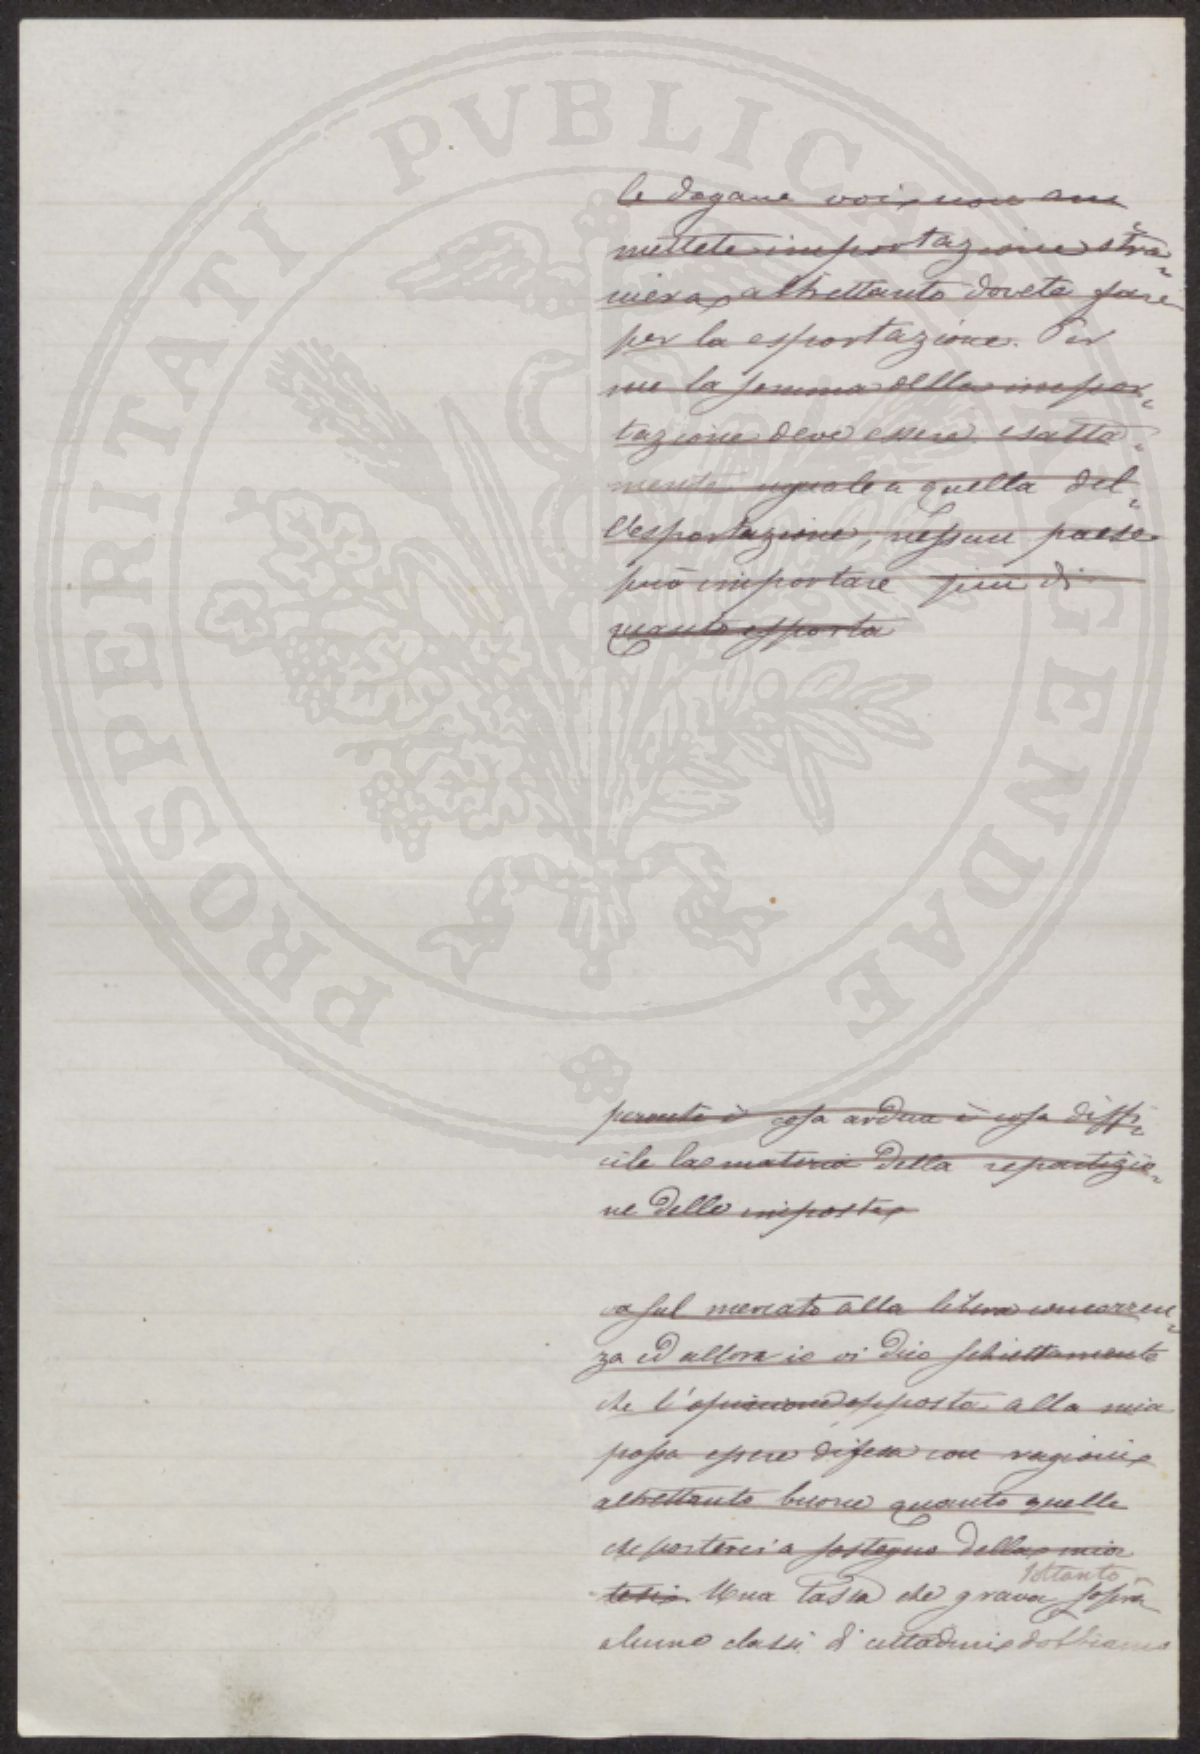 PROSPERITATI PVBLICAE AVGENDAE
le dogane voi non am
mettete importazione stra„
niera, altrettanto dovete fare
per la esportazione. Per
me la somma della impor„
tazione deve essere esatta„
mente uguale a quella del„
l'esportazione, nessun paese
può importare piu di
quanto esporta
perenti è cosa ardua è cosa diffi„
cile la materia della repartizio„
ne delle imposte
va sul mercato alla libera concorren„
za ed allora io vi dico schiettamente
che l'opinione opposta alla mia
possa essere difesa con ragioni
altrettanto buone quanto quelle
che porterei a sostegno della mia
soltanto
tesi. Una tassa che grava sopra
alcune classi di cittadini dobbiamo